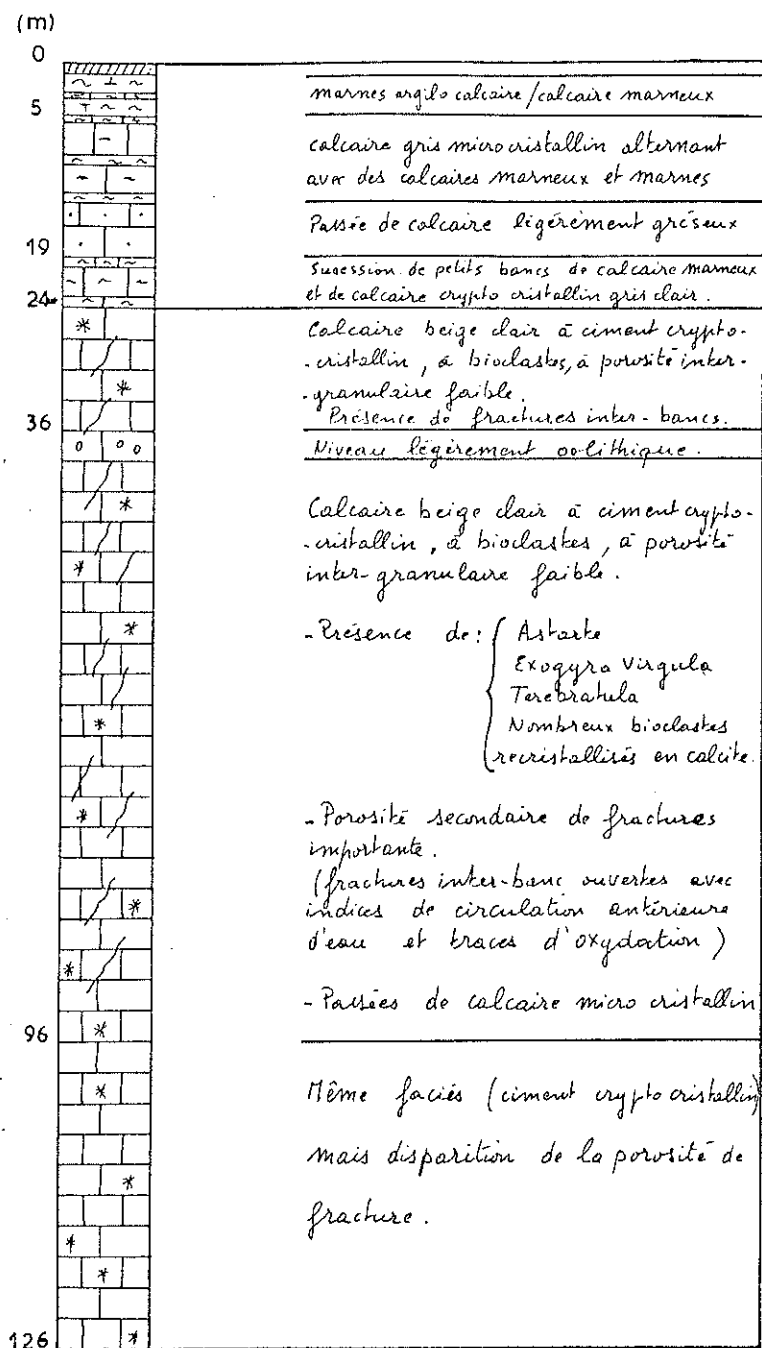 (m)
0
marnes argilo calcaire/calcaire marneux
5
calcaire gris microcristallin alternant
avec des calcaires marneux et marnes
Passée de calcaire légérement gréseux
19
Sucession de petits bancs de calcaire marneux
et de calcaire crypto cristallin gris clair.
24
Calcaire beige clair à ciment crypto-
-cristallin, à bioclastes, à porosité inter-
-granulaire faible.
Présence de fractures inter-bancs.
36
Niveau légèrement oolithique.
Calcaire beige clair à ciment crypto-
-cristallin, à bioclastes, à porosité
inter-granulaire faible.
-Présence de: Astarte
Exogyra Virgula
Terebratula
Nombreux bioclastes
recristallisés en calcite.
-Porosité secondaire de fractures
importante.
(fractures inter-banc ouvertes avec
indices de circulation antérieure
d'eau et traces d'oxydation)
-Passées de calcaire micro cristallin
96
Même faciés (ciment crypto cristallin)
mais disparition de la porosité de
fracture.
126